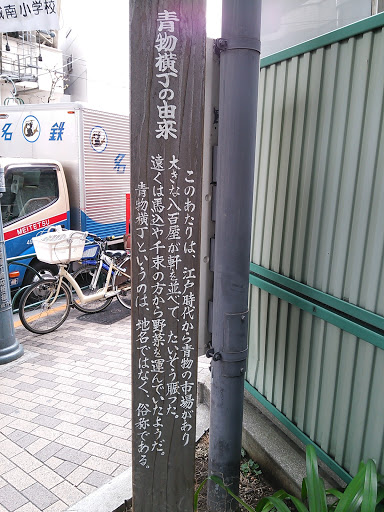 青物横丁の由来
このあたりは、江戸時代から青物の市場があり
大きな八百屋が軒を並べて、たいそう賑った。
遠くは馬込や千束の方から野菜を運んでいたようだ。
青物横丁というのは、地名ではなく、俗称である。
城南小学校
名鉄
名
MEITETSU